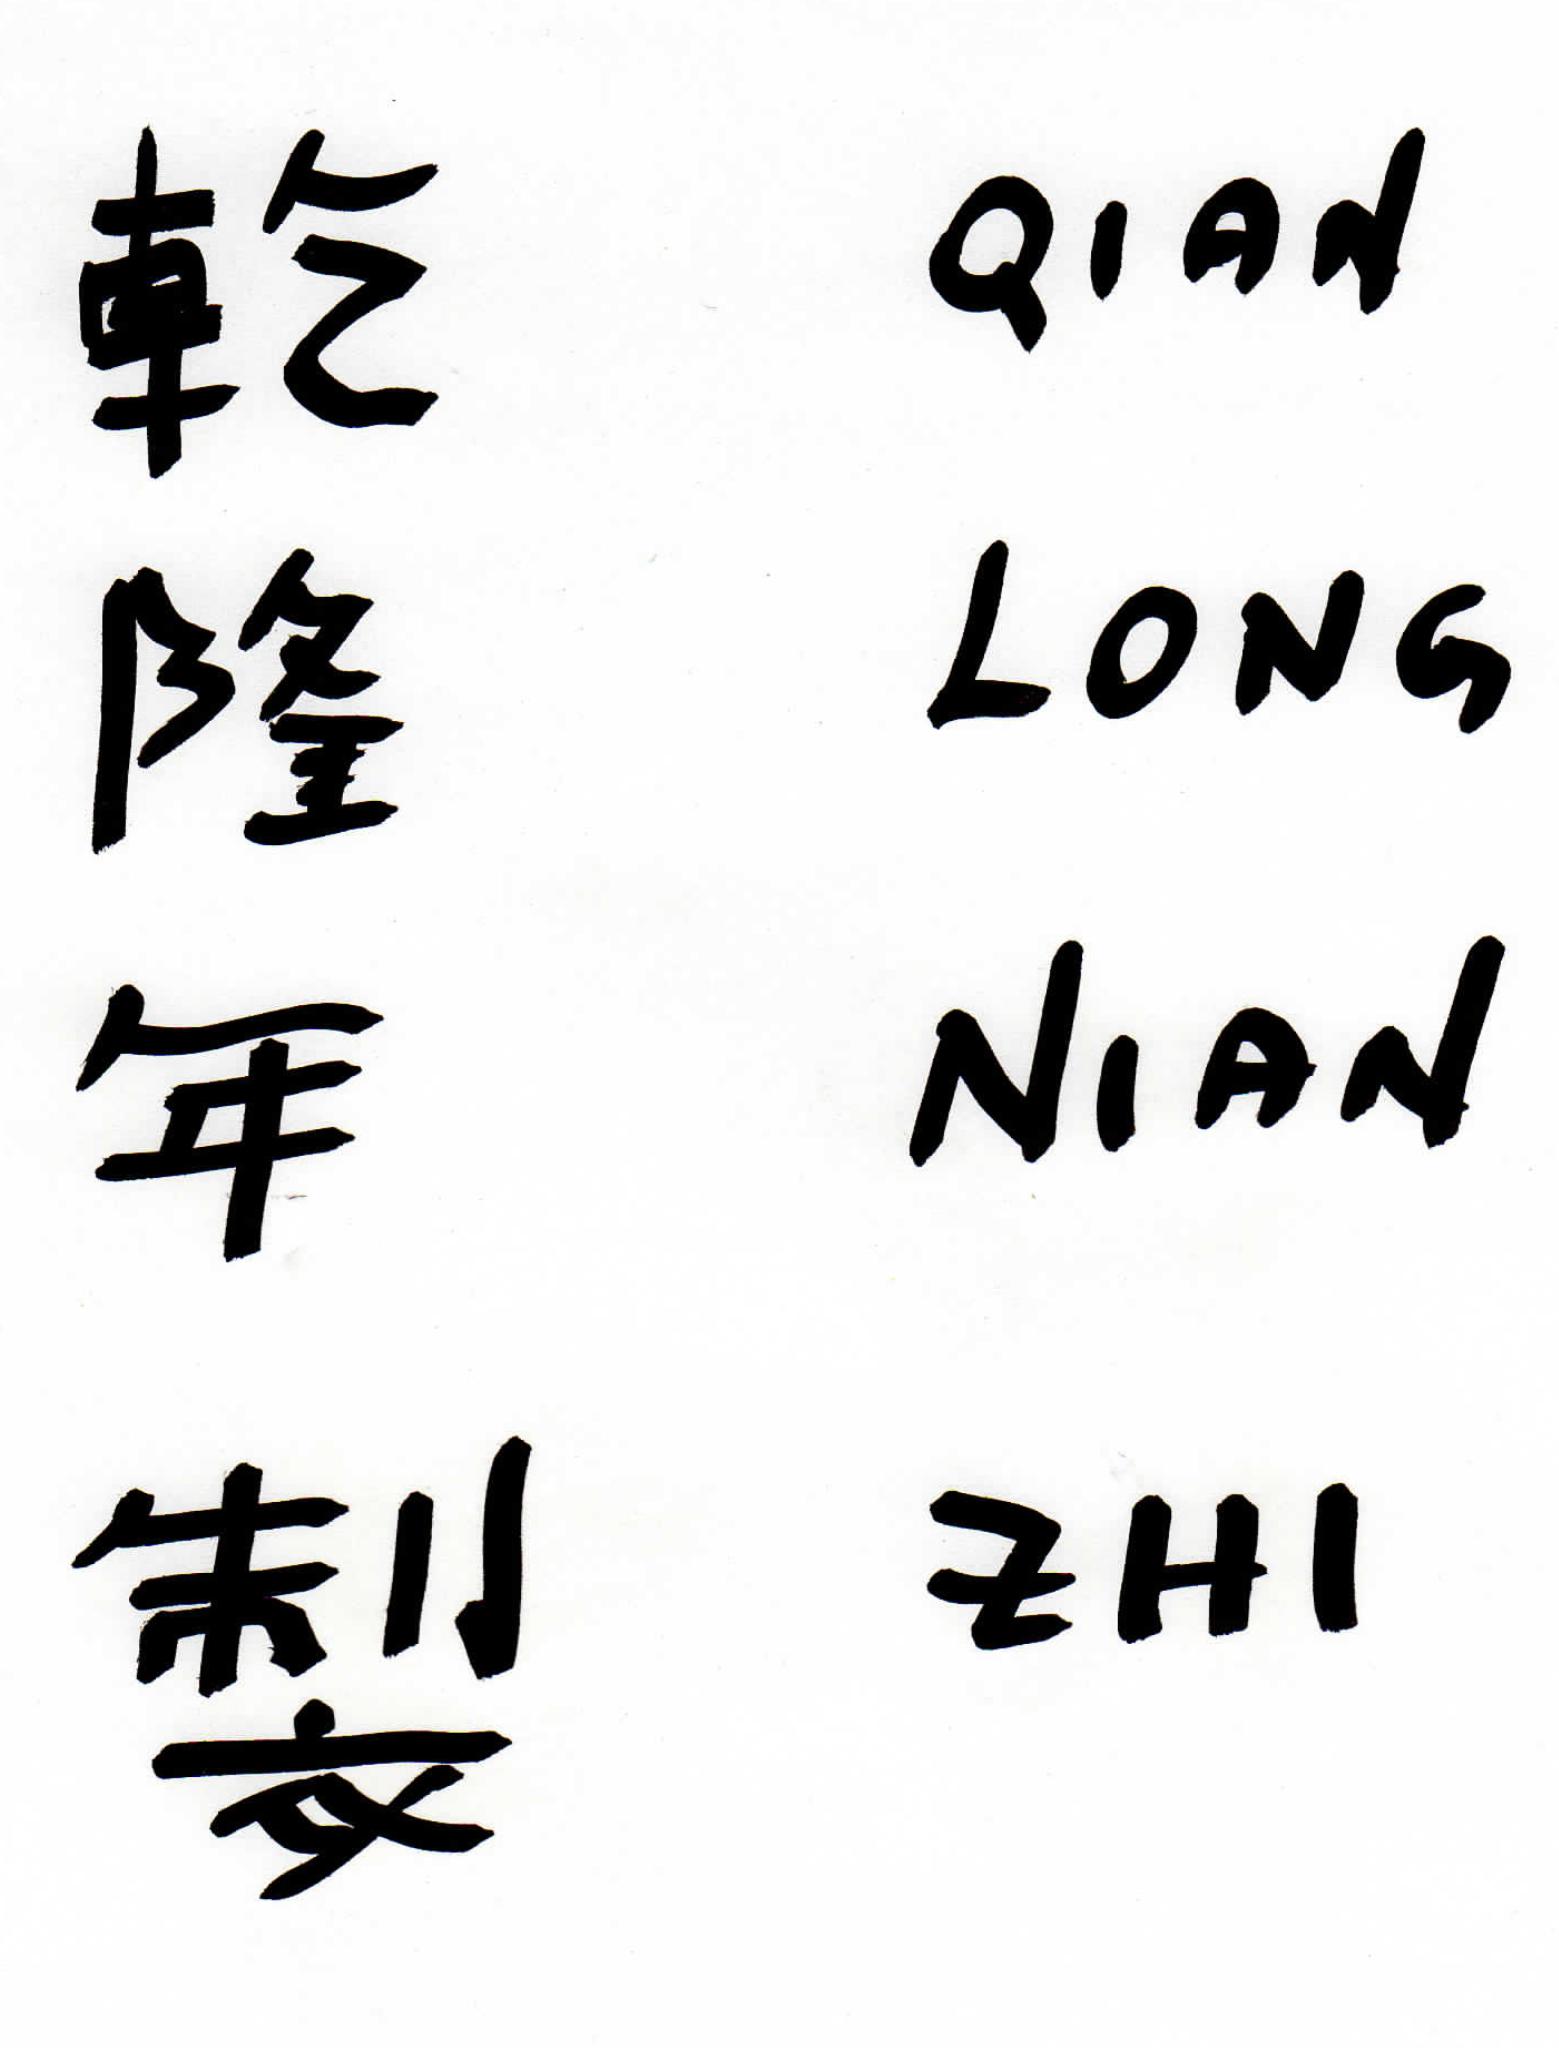 乾 QIAN
隆 LONG
年 NIAN
製 ZHI